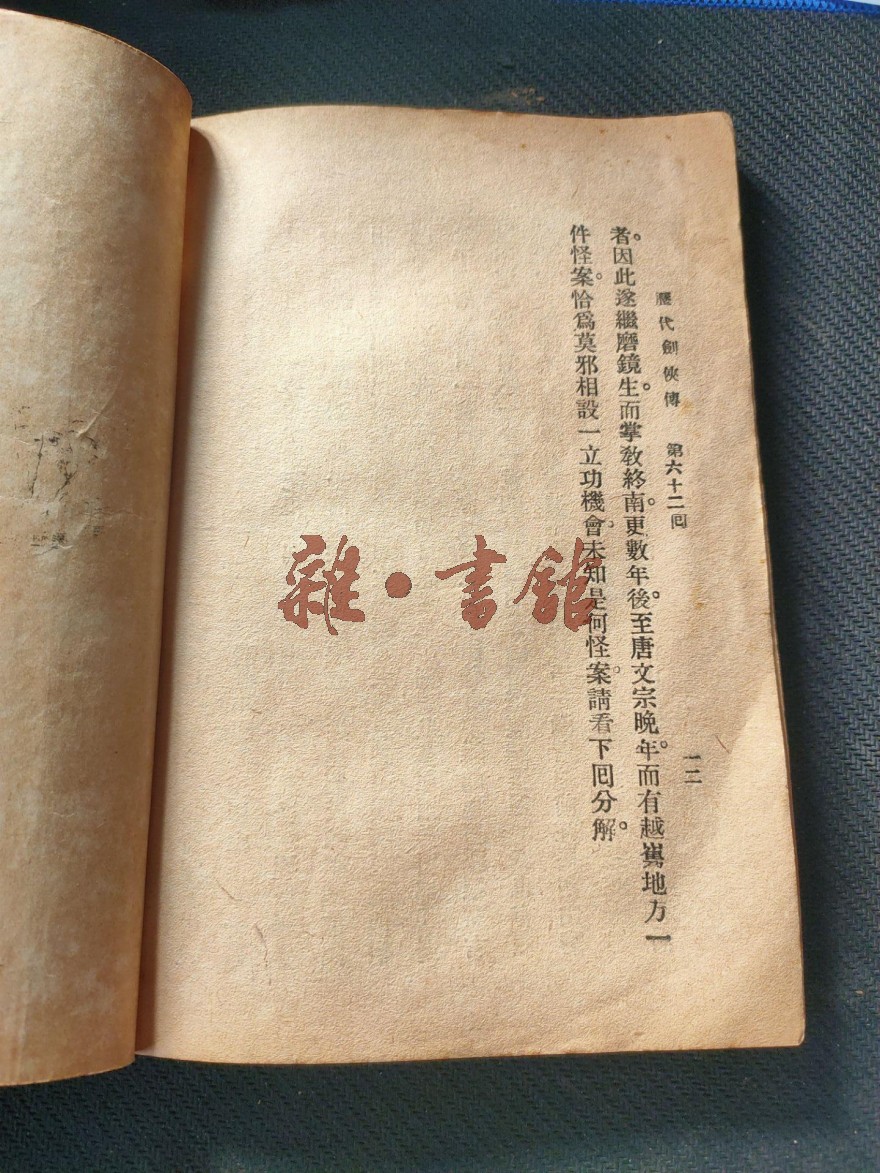 歷代劍俠傳　第六十二回
一二
者。因此遂繼磨鏡生。而掌敎終南。更數年後。至唐文宗晚年。而有越嶲地方一
件怪案。恰爲莫邪相設一立功機會。未知是何怪案。請看下囘分解。
雜·書館